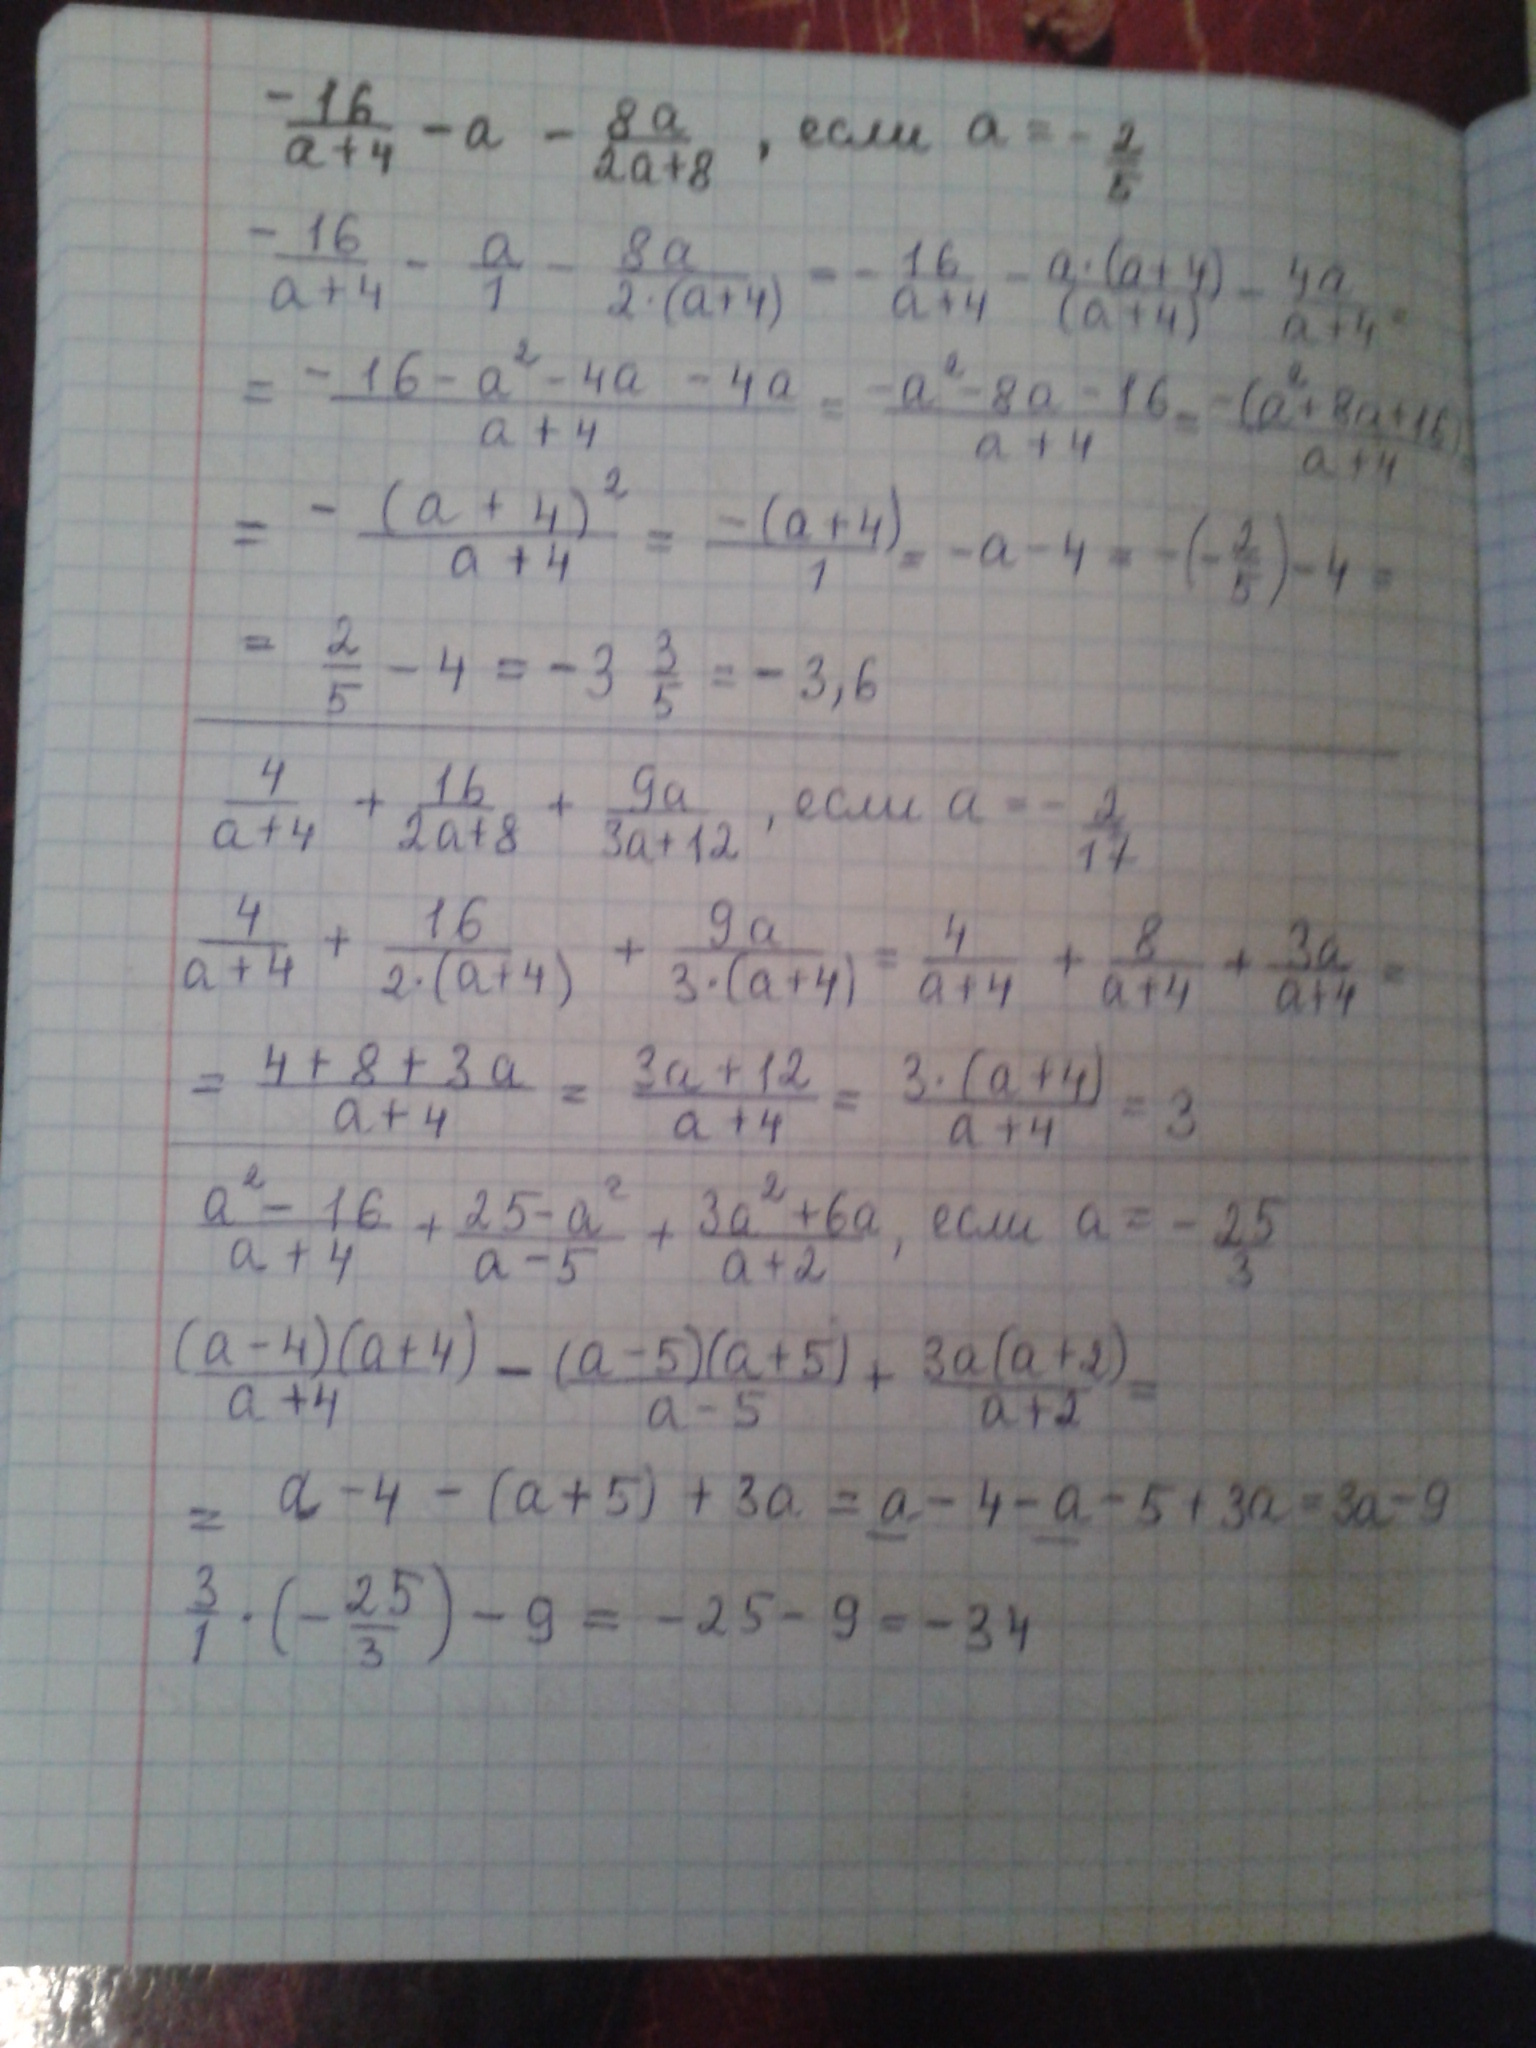 -16/(a+4) - a - 8a/(2a+8), если a = -2/5
-16/(a+4) - a/1 - 8a/(2·(a+4)) = -16/(a+4) - a·(a+4)/(a+4) - 4a/(a+4) =
= (-16-a²-4a-4a)/(a+4) = (-a²-8a-16)/(a+4) = -(a²+8a+16)/(a+4) =
= -(a+4)²/(a+4) = -(a+4)/1 = -a-4 = -(-2/5)-4 =
= 2/5 - 4 = -3 3/5 = -3,6
4/(a+4) + 16/(2a+8) + 9a/(3a+12), если a = -2/17
4/(a+4) + 16/(2·(a+4)) + 9a/(3·(a+4)) = 4/(a+4) + 8/(a+4) + 3a/(a+4) =
= (4+8+3a)/(a+4) = (3a+12)/(a+4) = 3·(a+4)/(a+4) = 3
(a²-16)/(a+4) + (25-a²)/(a-5) + (3a²+6a)/(a+2), если a = -25/3
(a-4)(a+4)/(a+4) - (a-5)(a+5)/(a-5) + 3a(a+2)/(a+2) =
= a-4-(a+5)+3a = a-4-a-5+3a = 3a-9
3/1·(-25/3)-9 = -25-9 = -34